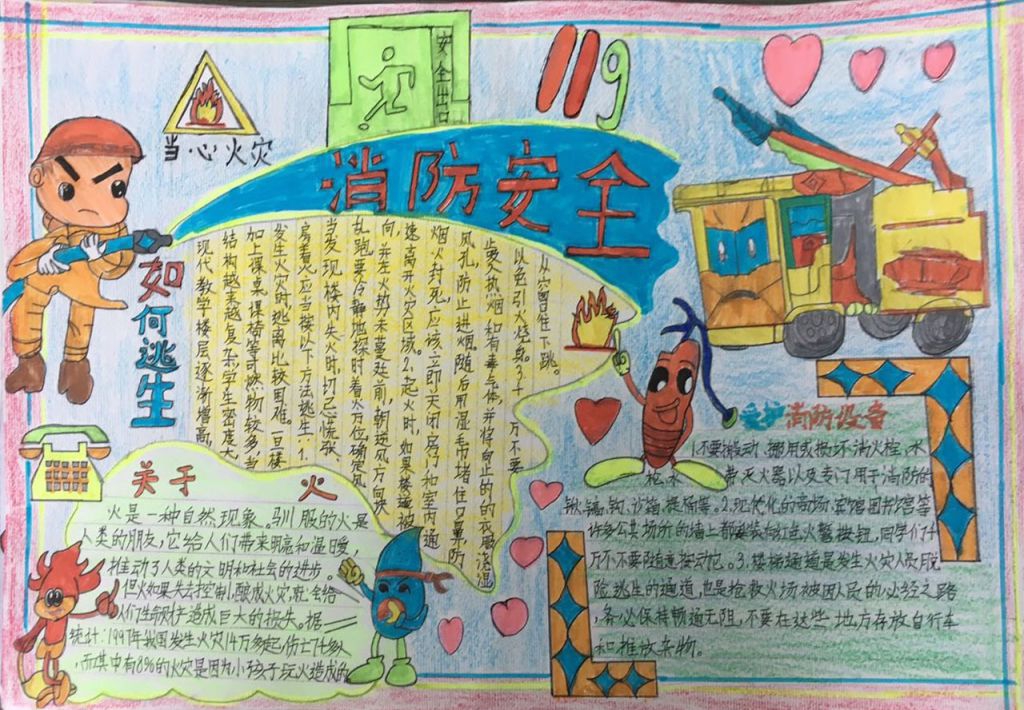 当心火灾
安全出口
119
消防安全
如何逃生
现代教学楼层逐渐增高,
结构越来越复杂,学生密度大
加上课桌课椅等可燃物较多,当
发生火灾时,逃离比较困难。一旦楼
房着火,应当按以下方法逃生:1.
当发现楼内失火时,切忌慌张、
乱跑,要冷静地探时着火方位,确定风
向,并在火势未蔓延前,朝逆风方向快
速离开火灾区域。2.起火时,如果楼道被
烟火封死,应该立即关闭房门和室内通
风孔,防止进烟随后用湿毛巾堵住口鼻,防
步吸热烟和有毒气体,并将身上的衣服浇湿
以免引火烧身。3.千万不要
从窗口往下跳。
关于火
火是一种自然现象。驯服的火是
人类的朋友,它给人们带来明亮和温暖,
推动了人类的文明和社会的进步。
但火如果失去控制,酿成火灾,就会给
人们生命财产造成巨大的损失。据
统计:1997年我国发生火灾14万多起伤亡7千多人
而其中有8%的火灾是因为小孩子玩火造成的
爱护消防设备
1.不要搬动、挪用或损坏消火栓、水
枪、水带、灭火器以及专门用于消防的
锹、镐、钩、沙箱、提桶等。2.现代化的商场、宾馆、图书馆等
许多公共场所的墙上都要装有红色火警按钮,同学们千
万不不要随意按动它。3.楼梯通道是发生火灾人员脱
险逃生的通道,也是抢救火场被困人民的必经之路
,务必保持畅通无阻,不要在这些地方存放自行车
和堆放杂物。